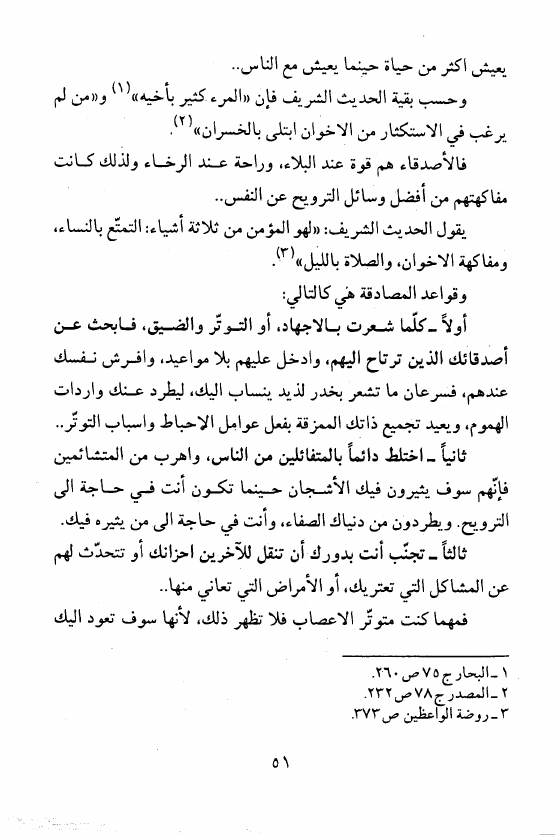 يعيش اكثر من حياة حينما يعيش مع الناس..
وحسب بقية الحديث الشريف فإن «المرء كثير بأخيه»(١) و«من لم
يرغب في الاستكثار من الاخوان ابتلى بالخسران»(٢).
فالأصدقاء هم قوة عند البلاء، وراحة عند الرخاء ولذلك كانت
مفاكهتهم من أفضل وسائل الترويح عن النفس..
يقول الحديث الشريف: «لهو المؤمن من ثلاثة أشياء: التمتّع بالنساء،
ومفاكهة الاخوان، والصلاة بالليل»(٣).
وقواعد المصادقة هي كالتالي:
أولاً ـ كلّما شعرت بالاجهاد، أو التوتّر والضيق، فابحث عن
أصدقائك الذين ترتاح اليهم، وادخل عليهم بلا مواعيد، وافرش نفسك
عندهم، فسرعان ما تشعر بخدر لذيد ينساب اليك، ليطرد عنك واردات
الهموم، ويعيد تجميع ذاتك الممزقة بفعل عوامل الاحباط واسباب التوتّر..
ثانياً ـ اختلط دائماً بالمتفائلين من الناس، واهرب من المتشائمين
فإنّهم سوف يثيرون فيك الأشجان حينما تكون أنت في حاجة الى
الترويح. ويطردون من دنياك الصفاء، وأنت في حاجة الى من يثيره فيك.
ثالثاً ـ تجنّب أنت بدورك أن تنقل للآخرين احزانك أو تتحدّث لهم
عن المشاكل التي تعتريك، أو الأمراض التي تعاني منها..
فمهما كنت متوتّر الاعصاب فلا تظهر ذلك، لأنها سوف تعود اليك
١ ـ البحار ج ٧٥ ص ٢٦٠.
٢ ـ المصدر ج ٧٨ ص ٢٣٢.
٣ ـ روضة الواعظين ص ٣٧٣.
٥١